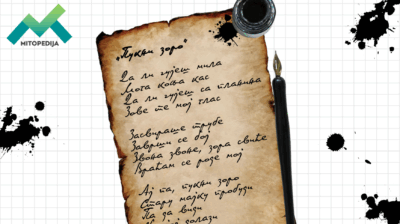 MITOPEDIJA
„Пукни зоро"
Да ли чујеш мила
Мога коња кас
Да ли чујеш са планина
Зове те мој глас
Засвираше трубе
Заврши се бој
Звона звоне, зора свиће
Враћам се роде мој
Ај па, пукни зоро
Стару мајку пробуди
Па да види
долази